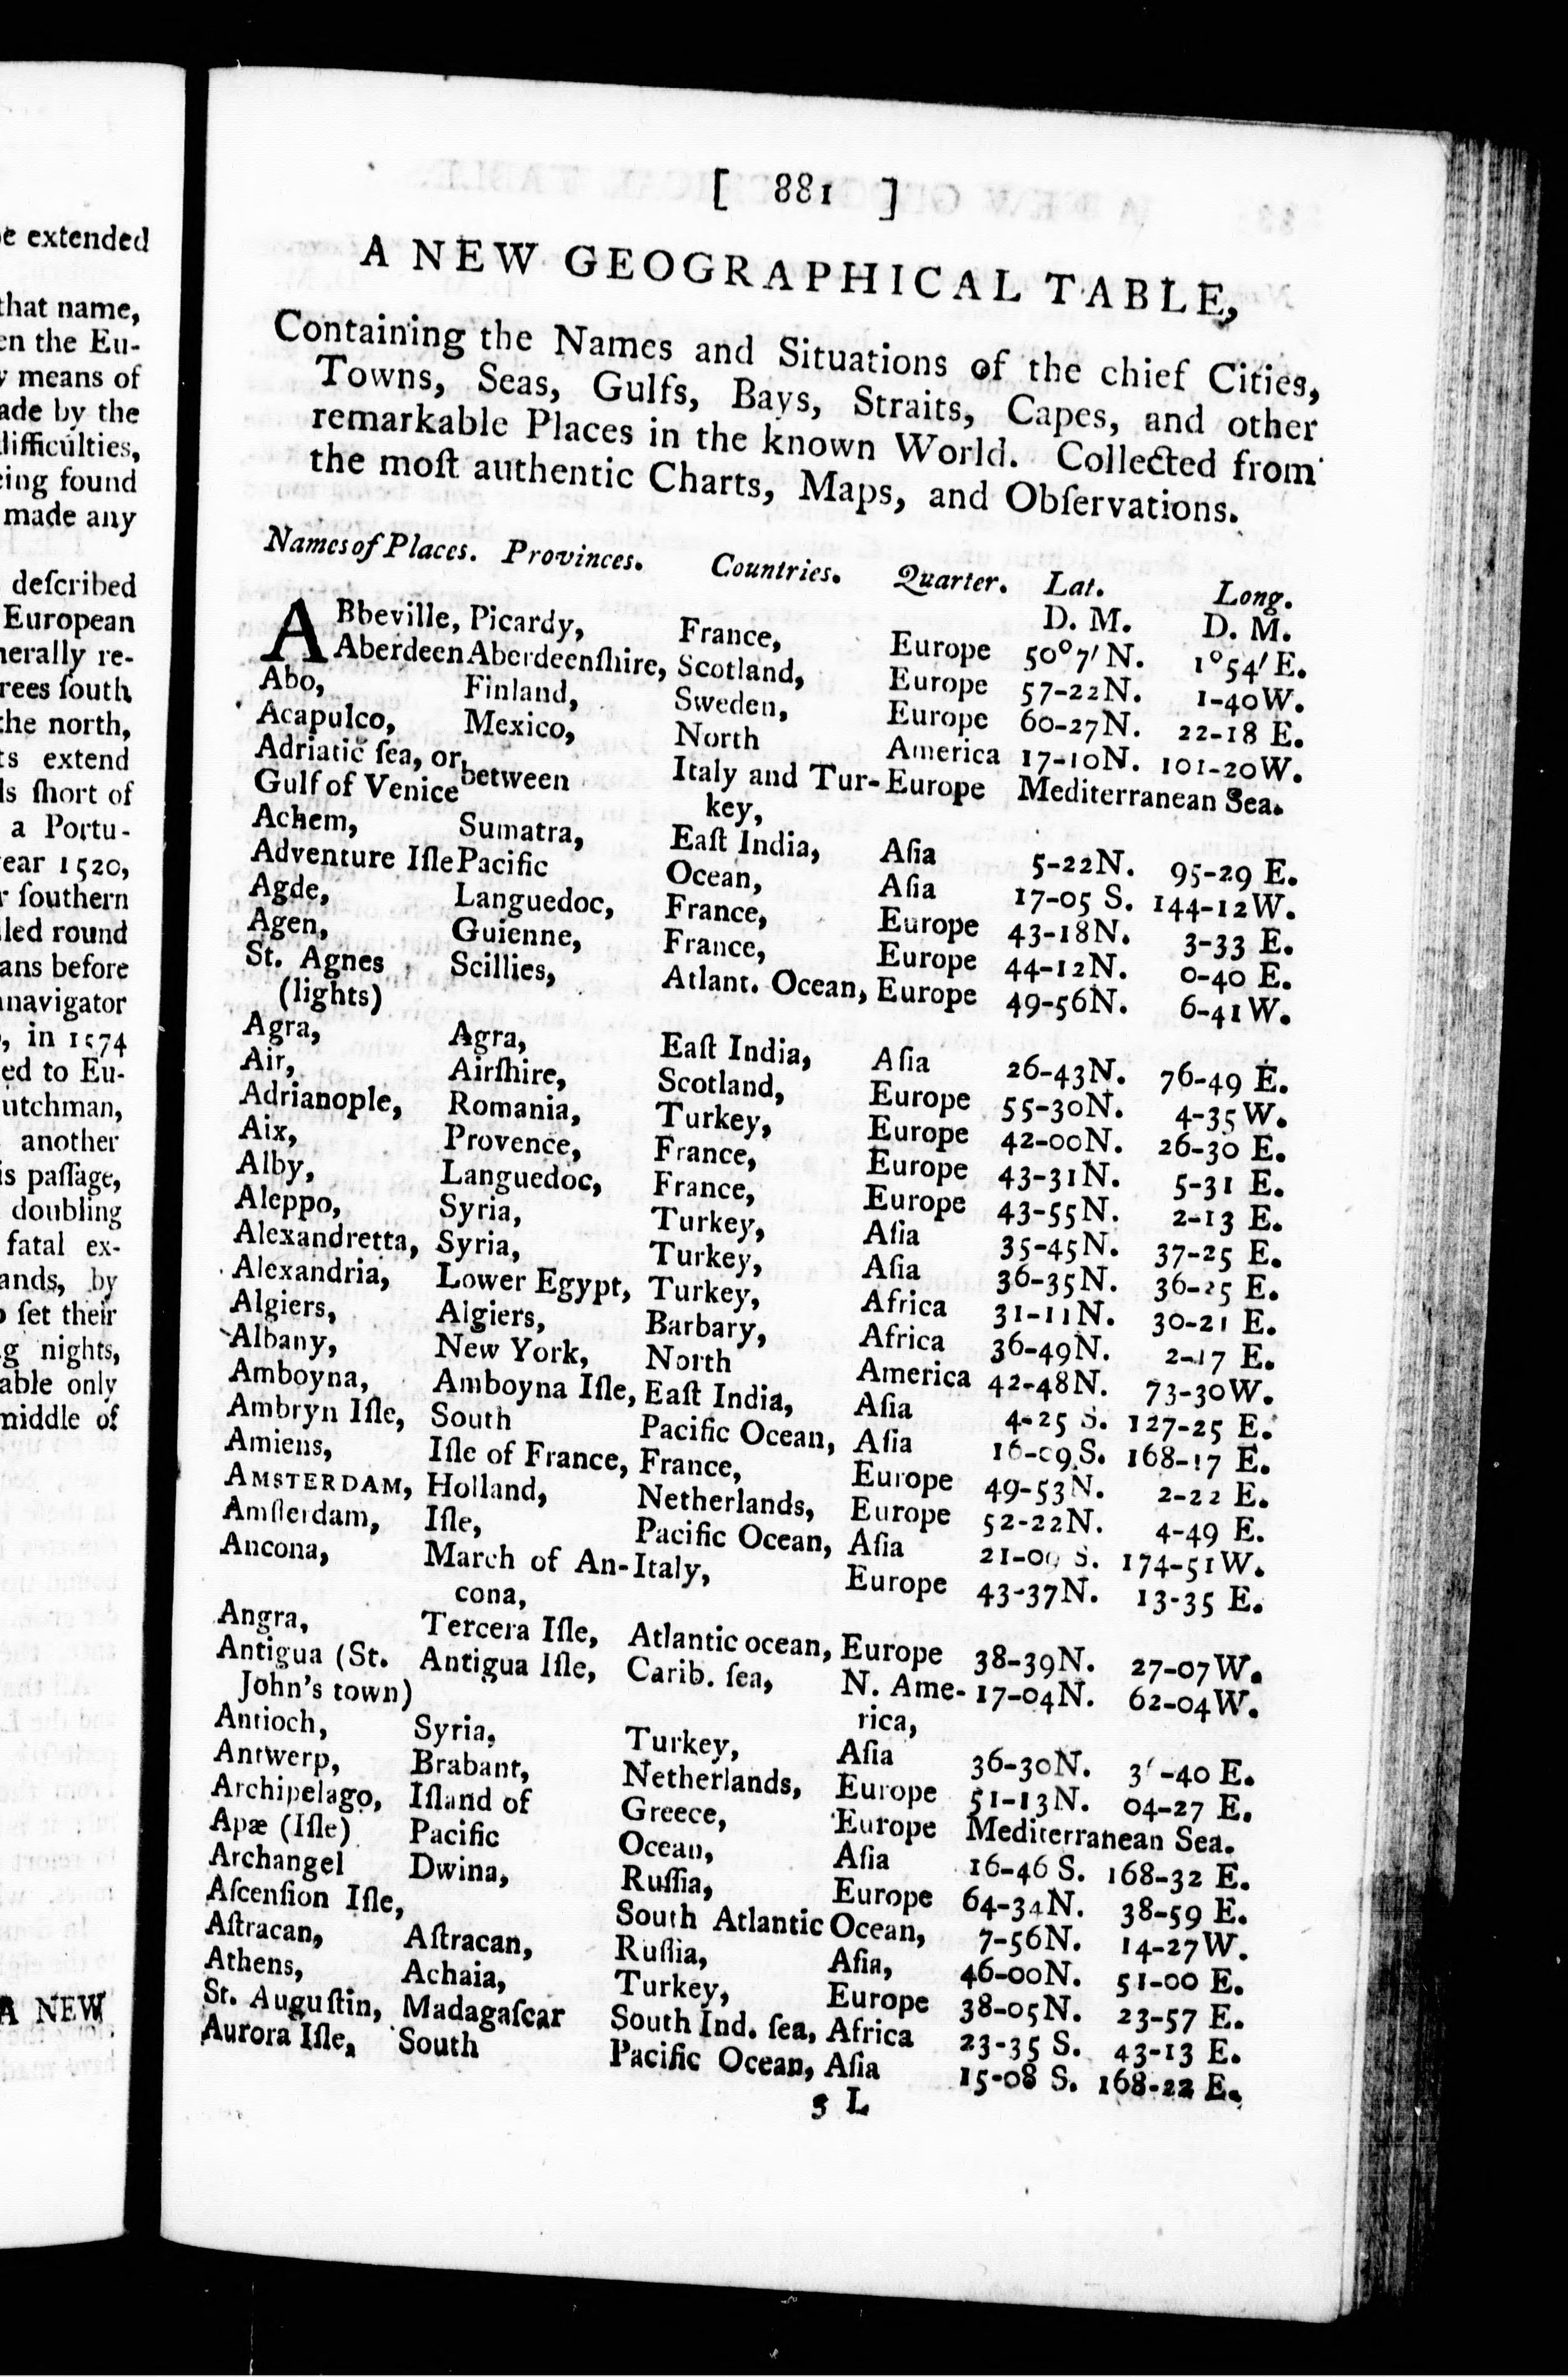 e extended
that name,
en the Eu-
means of
ade by the
difficulties,
eing found
made any
deſcribed
European
nerally re-
rees ſouth
the north,
ts extend
ls ſhort of
a Portu-
year 1520,
r ſouthern
led round
ans before
navigator
, in 1574
ed to Eu-
utchman,
another
is paſſage,
doubling
fatal ex-
ands, by
ſet their
g nights,
able only
middle of
A NEW
[ 881 ]
A NEW GEOGRAPHICAL TABLE,
Containing the Names and Situations of the chief Cities,
Towns, Seas, Gulfs, Bays, Straits, Capes, and other
remarkable Places in the known World. Collected from
the moſt authentic Charts, Maps, and Obſervations.
Names of Places. Provinces. Countries. Quarter. Lat. Long.
D. M. D. M.
ABbeville, Picardy, France, Europe 50°7′N. 1°54′E.
Aberdeen Aberdeenſhire, Scotland, Europe 57-22N. 1-40W.
Abo, Finland, Sweden, Europe 60-27N. 22-18 E.
Acapulco, Mexico, North America 17-10N. 101-20W.
Adriatic ſea, or
Gulf of Venice between Italy and Tur- Europe Mediterranean Sea.
key,
Achem, Sumatra, Eaſt India, Aſia 5-22N. 95-29 E.
Adventure Iſle Pacific Ocean, Aſia 17-05 S. 144-12W.
Agde, Languedoc, France, Europe 43-18N. 3-33 E.
Agen, Guienne, France, Europe 44-12N. 0-40 E.
St. Agnes Scillies, Atlant. Ocean, Europe 49-56N. 6-41W.
(lights)
Agra, Agra, Eaſt India, Aſia 26-43N. 76-49 E.
Air, Airſhire, Scotland, Europe 55-30N. 4-35W.
Adrianople, Romania, Turkey, Europe 42-00N. 26-30 E.
Aix, Provence, France, Europe 43-31N. 5-31 E.
Alby, Languedoc, France, Europe 43-55N. 2-13 E.
Aleppo, Syria, Turkey, Aſia 35-45N. 37-25 E.
Alexandretta, Syria, Turkey, Aſia 36-35N. 36-25 E.
Alexandria, Lower Egypt, Turkey, Africa 31-11N. 30-21 E.
Algiers, Algiers, Barbary, Africa 36-49N. 2-17 E.
Albany, New York, North America 42-48N. 73-30W.
Amboyna, Amboyna Iſle, Eaſt India, Aſia 4-25 S. 127-25 E.
Ambryn Iſle, South Pacific Ocean, Aſia 16-09 S. 168-17 E.
Amiens, Iſle of France, France, Europe 49-53N. 2-22 E.
AMSTERDAM, Holland, Netherlands, Europe 52-22N. 4-49 E.
Amſterdam, Iſle, Pacific Ocean, Aſia 21-09 S. 174-51W.
Ancona, March of An- Italy, Europe 43-37N. 13-35 E.
cona,
Angra, Tercera Iſle, Atlantic ocean, Europe 38-39N. 27-07W.
Antigua (St. Antigua Iſle, Carib. ſea, N. Ame- 17-04N. 62-04W.
John's town) rica,
Antioch, Syria, Turkey, Aſia 36-30N. -40 E.
Antwerp, Brabant, Netherlands, Europe 51-13N. 04-27 E.
Archipelago, Iſland of Greece, Europe Mediterranean Sea.
Apæ (Iſle) Pacific Ocean, Aſia 16-46 S. 168-32 E.
Archangel Dwina, Ruſſia, Europe 64-34N. 38-59 E.
Aſcenſion Iſle, South Atlantic Ocean, 7-56N. 14-27W.
Aſtracan, Aſtracan, Ruſſia, Aſia, 46-00N. 51-00 E.
Athens, Achaia, Turkey, Europe 38-05N. 23-57 E.
St. Auguſtin, Madagaſcar South Ind. ſea, Africa 23-35 S. 43-13 E.
Aurora Iſle, South Pacific Ocean, Aſia 15-08 S. 168-22 E.
3 L